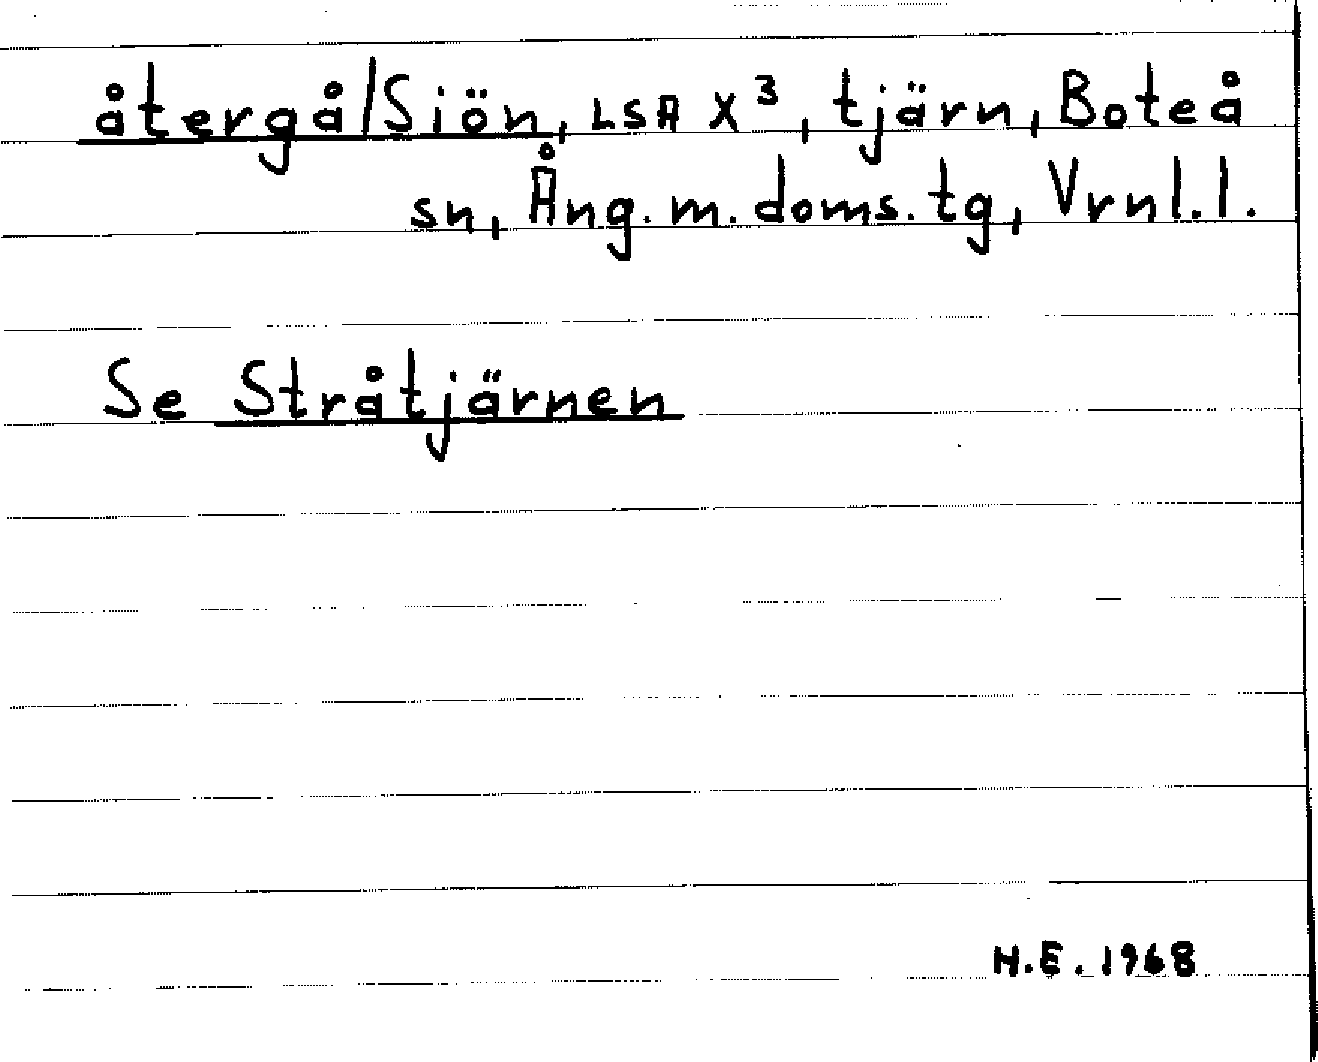 återgå/Sjön, LSA X³, tjärn, Boteå
sn, Ång. m. doms. tg, Vrnl. l.
Se Stråtjärnen
H.E. 1968